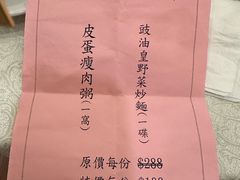 豉油皇野菜炒麵(一碟)
皮蛋瘦肉粥(一窩)
原價每份 $288